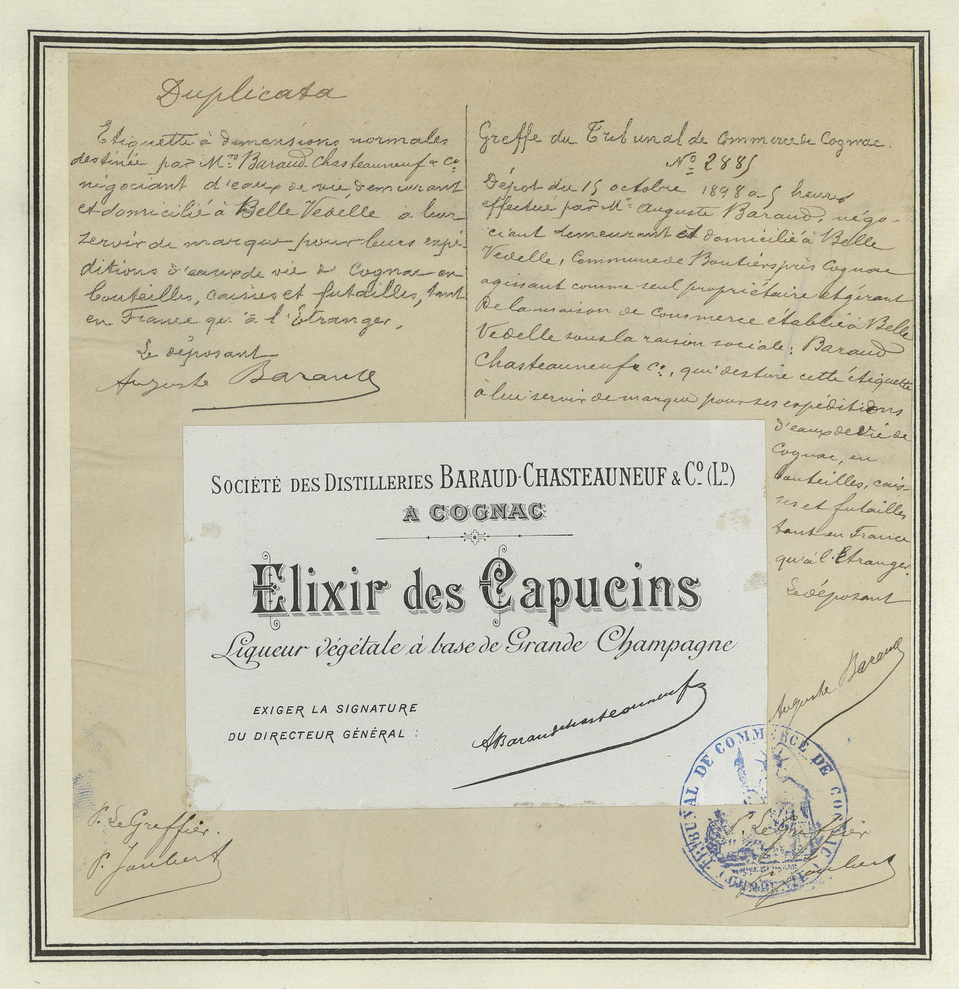 Duplicata
Etiquette à dimensions normales
destinée par Mrs Baraud Chasteauneuf & Co
négociant d'eaux de vie demeurant
et domicilié à Belle Vedelle à leur
servir de marque pour leurs expé-
ditions d'eaux de vie de Cognac en
bouteilles, caisses et futailles, tant
en France qu'à l'Etranger,
Le déposant
Auguste Baraud
Greffe du Tribunal de Commerce de Cognac.
No 2885
Dépot du 15 octobre 1898 à 5 heures
effectué par Mr Auguste Baraud, négo-
ciant demeurant et domicilié à Belle
Vedelle, Commune de Boutiers près Cognac
agissant comme seul propriétaire et gérant
de la maison de commerce établie à Belle
Vedelle sous la raison sociale; Baraud
Chasteauneuf & Co, qui destine cette étiquette
à lui servir de marque pour ses expéditions
d'eaux de vie de
Cognac, en
bouteilles, cais-
ses et futailles
tant en France
qu'à l'Etranger.
Le déposant
Auguste Baraud
SOCIÉTÉ DES DISTILLERIES BARAUD-CHASTEAUNEUF & Co (LD)
A COGNAC
Elixir des Capucins
Liqueur végétale à base de Grande Champagne
EXIGER LA SIGNATURE
DU DIRECTEUR GÉNÉRAL :
ABaraudchasteauneuf
P. Le Greffier.
P. Joubert
TRIBUNAL DE COMMERCE DE COGNAC
(CHARENTE)
P. Le Greffier
P. Joubert